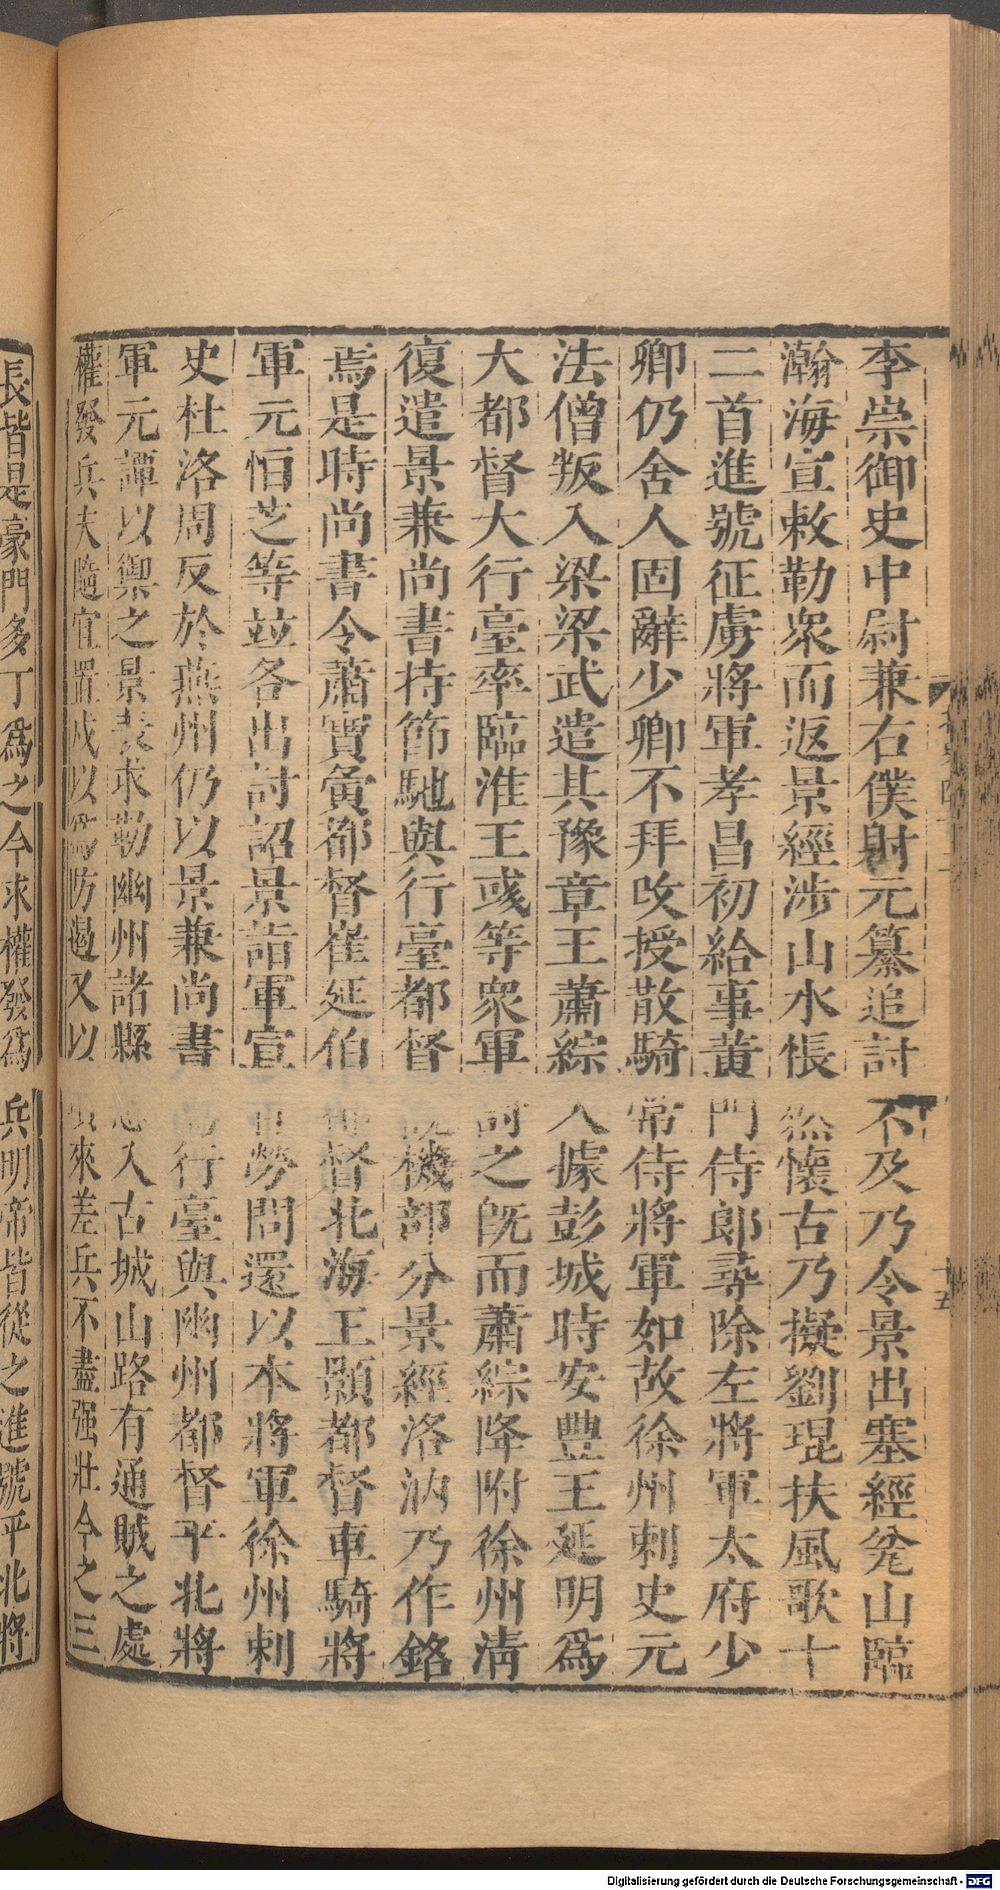 李崇御史中尉兼右僕射元纂追討不及乃令景出塞經瓫山臨
瀚海宣敕勒衆而返景經涉山水悵然懷古乃擬劉琨扶風歌十
二首進號征虜將軍孝昌初給事黃門侍郎尋除左將軍太府少
卿仍舍人固辭少卿不拜改授散騎常侍將軍如故徐州刺史元
法僧叛入梁梁武遣其豫章王蕭綜入據彭城時安豐王延明爲
大都督大行臺率臨淮王彧等衆軍討之旣而蕭綜降附徐州淸
復遣景兼尚書持節馳與行臺都督機部分景經洛汭乃作銘
焉是時尚書令蕭寶夤都督崔延伯都督北海王顥都督車騎將
軍元恒芝等並各出討詔景詣軍宣勞問還以本將軍徐州刺
史杜洛周反於燕州仍以景兼尚書行臺與幽州都督平北將
軍元譚以禦之景表求勒幽州諸縣悉入古城山路有通賊之處
權發兵夫隨宜置戍以爲防遏又以來差兵不盡强壯今之三
長皆是豪門多丁爲之今求權發爲兵明帝皆從之進號平北將
十五
Digitalisierung gefördert durch die Deutsche Forschungsgemeinschaft - DFG